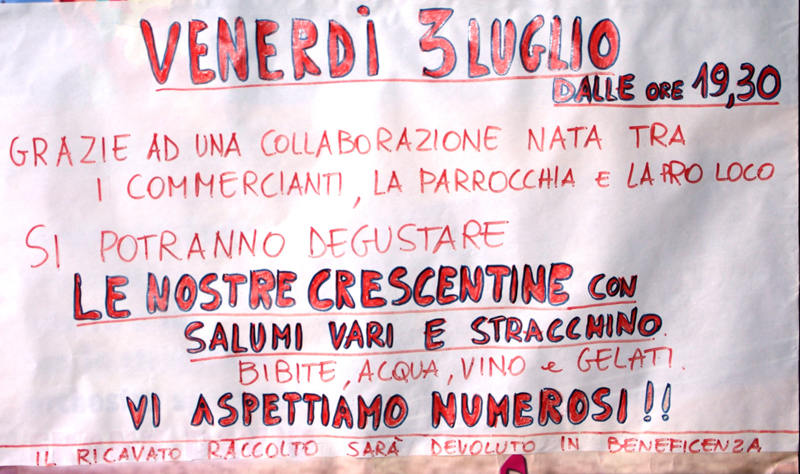 VENERDÌ 3 LUGLIO
DALLE ORE 19,30
GRAZIE AD UNA COLLABORAZIONE NATA TRA
I COMMERCIANTI, LA PARROCCHIA E LA PRO LOCO
SI POTRANNO DEGUSTARE
LE NOSTRE CRESCENTINE CON
SALUMI VARI E STRACCHINO.
BIBITE, ACQUA, VINO e GELATI.
VI ASPETTIAMO NUMEROSI!!
IL RICAVATO RACCOLTO SARÀ DEVOLUTO IN BENEFICENZA